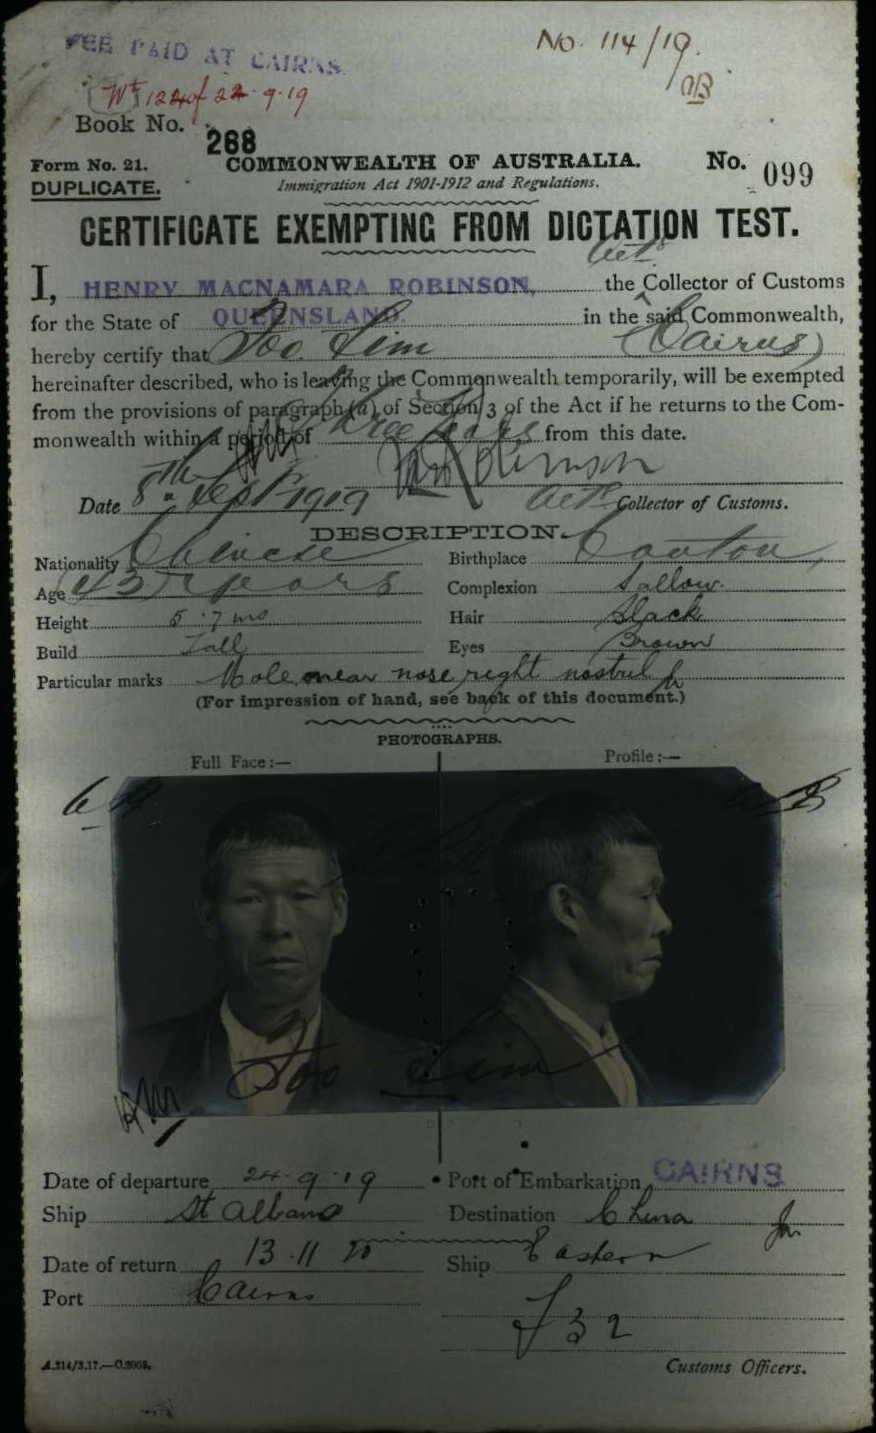 FEE PAID AT CAIRNS
No. 114/19.
Wt 124 of 22.9.19
Book No. 268
Form No. 21. COMMONWEALTH OF AUSTRALIA. No. 099
DUPLICATE. Immigration Act 1901-1912 and Regulations.
CERTIFICATE EXEMPTING FROM DICTATION TEST.
I, HENRY MACNAMARA ROBINSON, the Actg Collector of Customs
for the State of QUEENSLAND. in the said Commonwealth,
hereby certify that Foo Lim (Cairns)
hereinafter described, who is leaving the Commonwealth temporarily, will be exempted
from the provisions of paragraph (a) of Section 3 of the Act if he returns to the Com-
monwealth within a period of Three Years from this date.
HM Robinson
Date 8th Sept 1919 Actg Collector of Customs.
DESCRIPTION.
Nationality Chinese Birthplace Canton
Age 43 years Complexion Sallow.
Height 5.7 ins Hair Black
Build Tall Eyes Brown
Particular marks Mole near nose right nostril
(For impression of hand, see back of this document.)
PHOTOGRAPHS.
Full Face:— Profile:—
Foo Lim
Date of departure 24.9.19 Port of Embarkation CAIRNS
Ship St Albans Destination China
Date of return 13.11.20 Ship Eastern
Port Cairns
F32
A.214/3.17.—C.2008. Customs Officers.